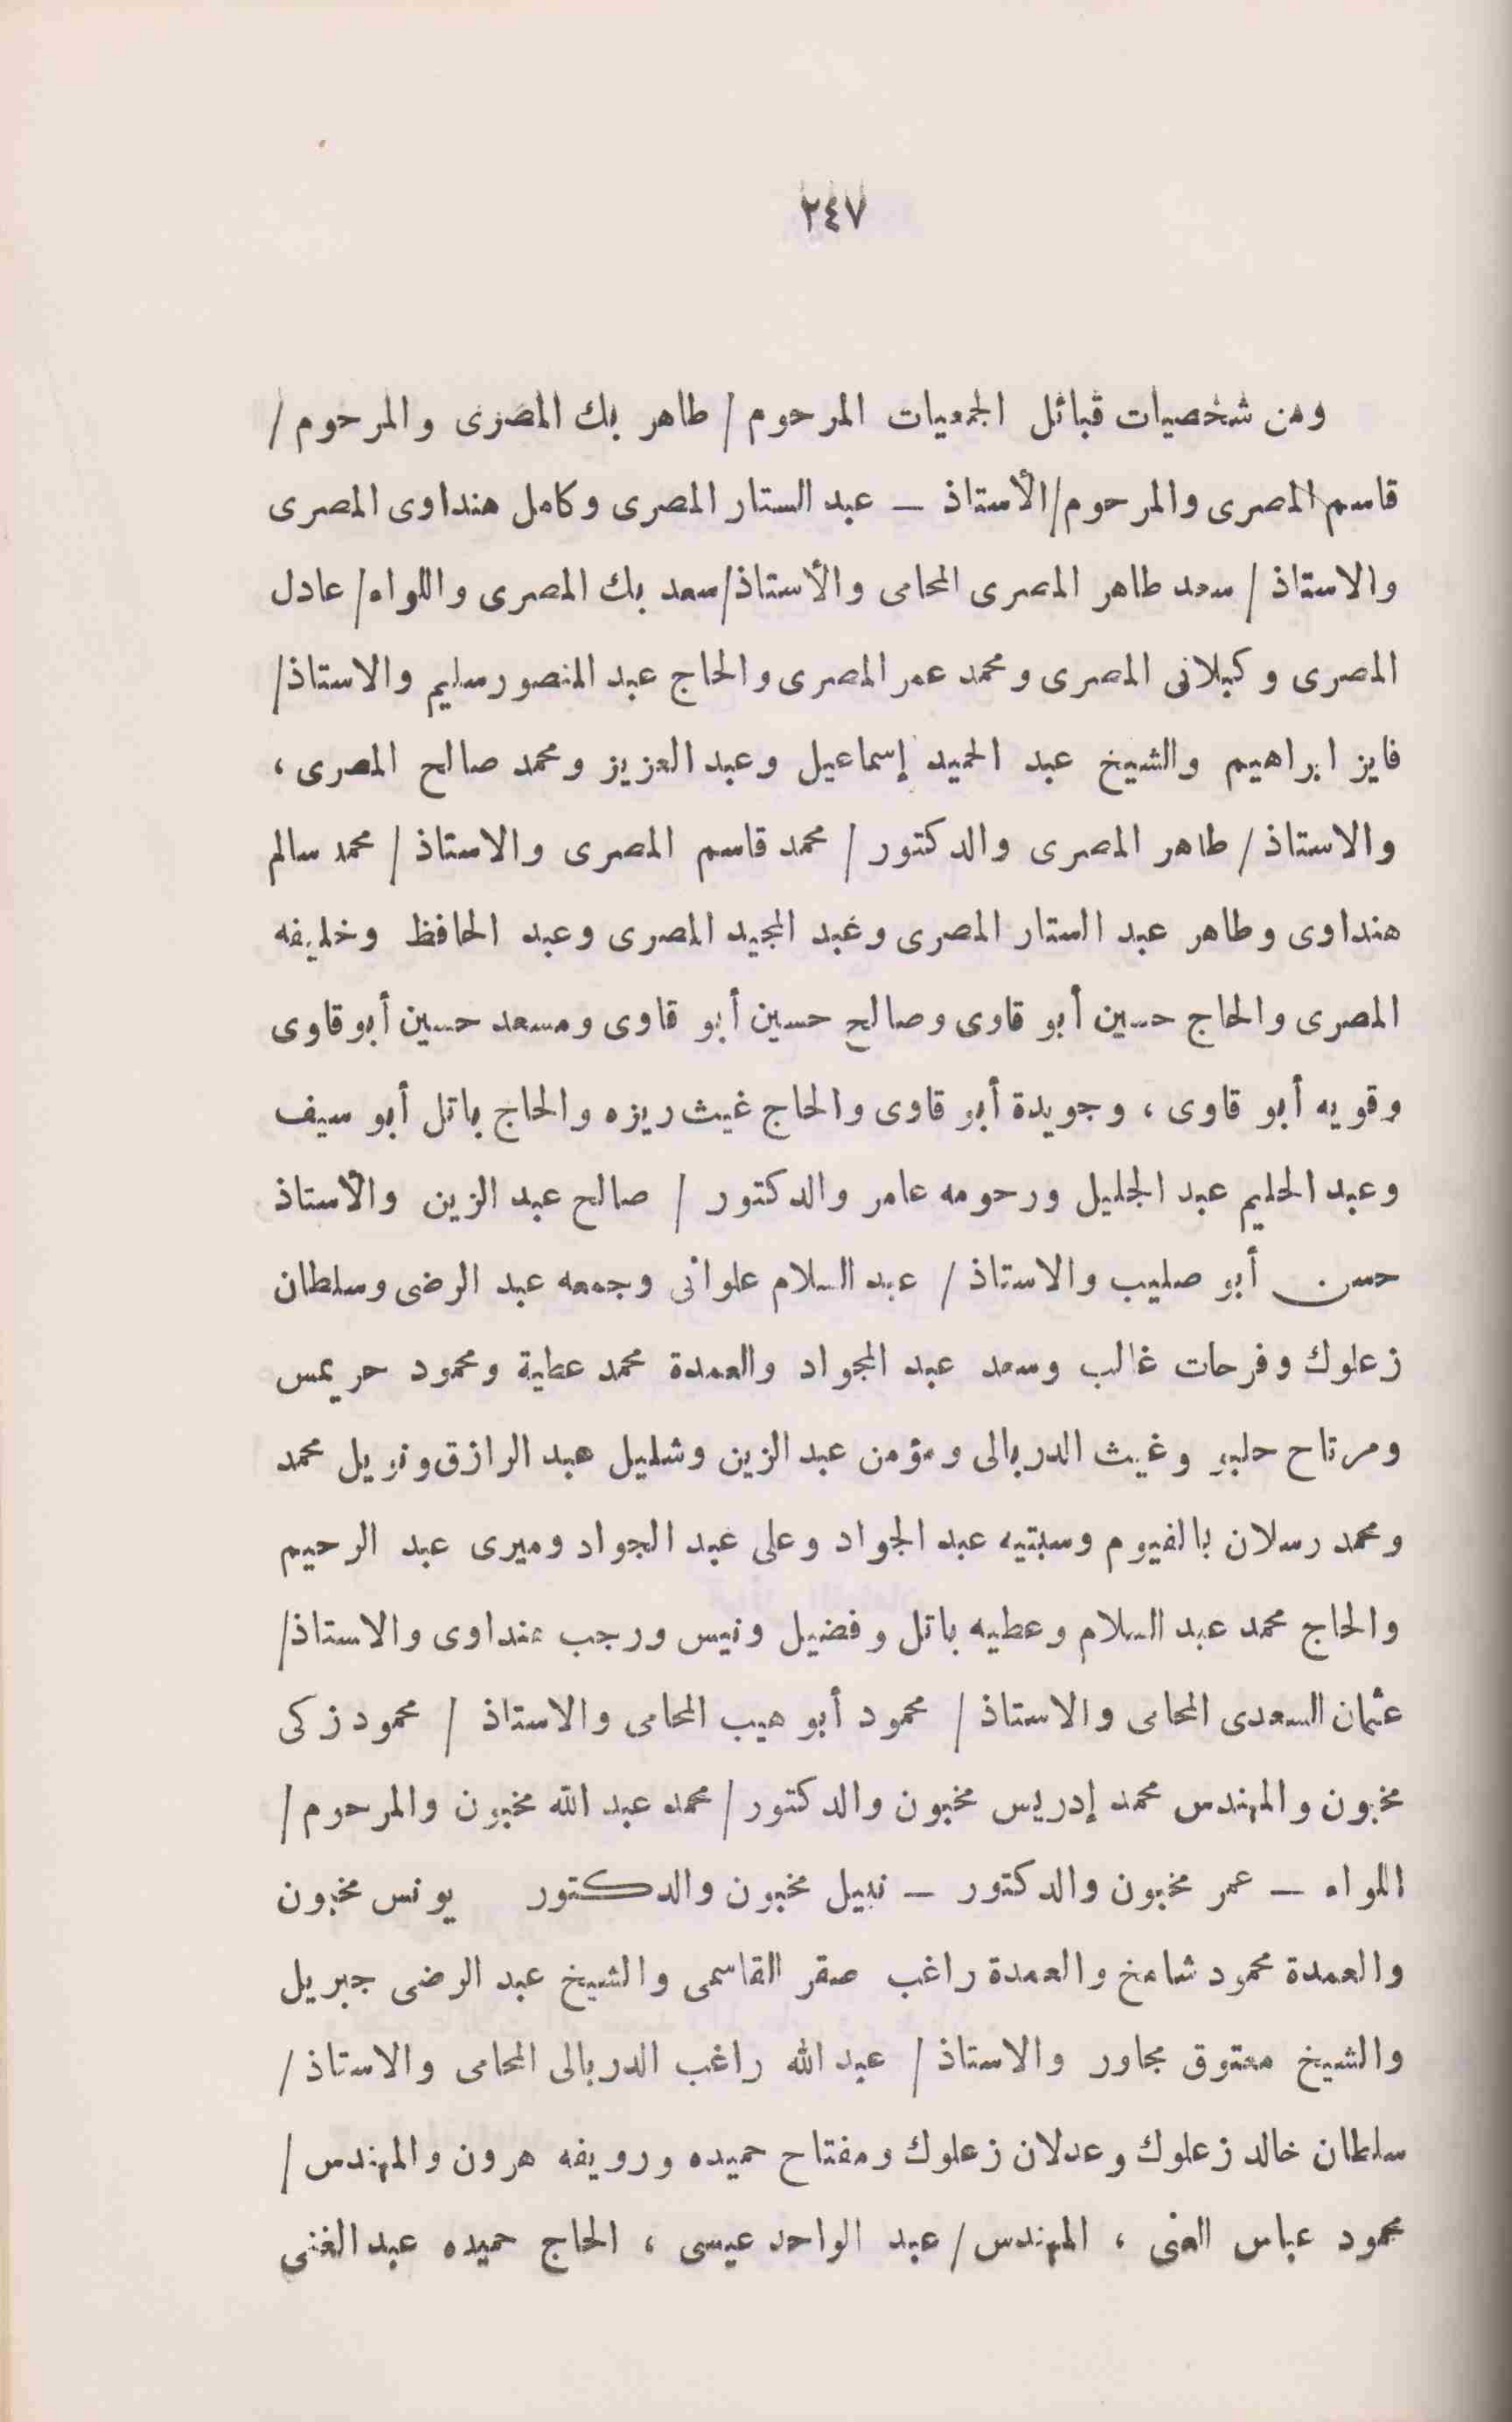 ٢٤٧
ومن شخصيات قبائل الجمعيات المرحوم / طاهر بك المصرى والمرحوم /
قاسم المصرى والمرحوم/الأستاذ — عبد الستار المصرى وكامل هنداوى المصرى
والاستاذ / سعد طاهر المصرى المحامى والأستاذ/سعد بك المصرى واللواء/ عادل
المصرى وكيلانى المصرى ومحمد عمر المصرى والحاج عبد المنصور سليم والاستاذ/
فايز ابراهيم والشيخ عبد الحميد إسماعيل وعبد العزيز ومحمد صالح المصرى ،
والاستاذ / طاهر المصرى والدكتور / محمد قاسم المصرى والاستاذ / محمد سالم
هنداوى وطاهر عبد الستار المصرى وعبد المجيد المصرى وعبد الحافظ وخليفه
المصرى والحاج حسين أبو قاوى وصالح حسين أبو قاوى ومسعد حسين أبو قاوى
وقويه أبو قاوى ، وجويدة أبو قاوى والحاج غيث ريزه والحاج باتل أبو سيف
وعبد الحليم عبد الجليل ورحومه عامر والدكتور / صالح عبد الزين والأستاذ
حسن أبو صليب والاستاذ / عبد السلام علوانى وجمعه عبد الرضى وسلطان
زعلوك وفرحات غالب وسعد عبد الجواد والعمدة محمد عطية ومحمود حريمس
ومرتاح حلبو وغيث الدربالى ومؤمن عبد الزين وشليل عبد الرازق ونزيل محمد
ومحمد رسلان بالفيوم وسبتيه عبد الجواد وعلى عبد الجواد وميرى عبد الرحيم
والحاج محمد عبد السلام وعطيه باتل وفضيل ونيس ورجب هنداوى والاستاذ/
عثمان السعدى المحامى والاستاذ / محمود أبو هيب المحامى والاستاذ / محمود زكى
مخبون والمهندس محمد إدريس مخبون والدكتور / محمد عبد الله مخبون والمرحوم /
اللواء — عمر مخبون والدكتور — نبيل مخبون والدكتور يونس مخبون
والعمدة محمود شامخ والعمدة راغب صقر القاسمى والشيخ عبد الرضى جبريل
والشيخ معتوق مجاور والاستاذ / عبد الله راغب الدربالى المحامى والاستاذ /
سلطان خالد زعلوك وعدلان زعلوك ومفتاح حميده ورويفه هرون والمهندس /
محمود عباس العنى ، المهندس / عبد الواحد عيسى ، الحاج حميده عبد الغنى